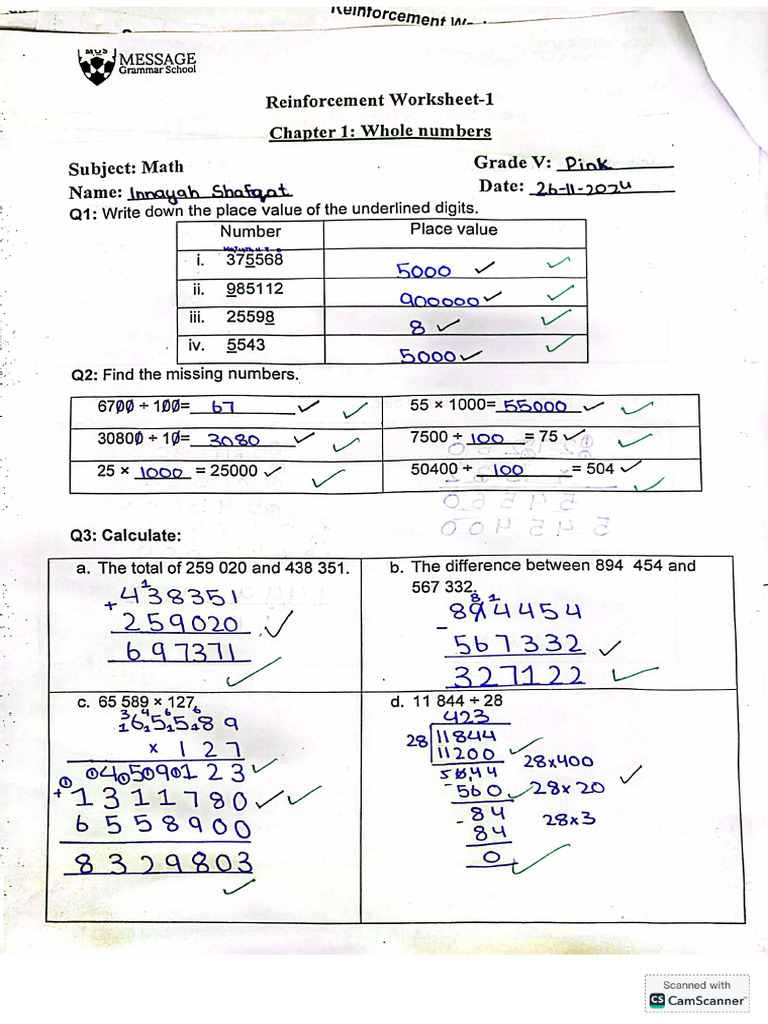 Reinforcement W
MGS
MESSAGE
Grammar School
Reinforcement Worksheet-1
Chapter 1: Whole numbers
Subject: Math
Grade V: Pink
Name: Innayah Shafqat
Date: 26-11-2024
Q1: Write down the place value of the underlined digits.
Number Place value
i. 375568 5000 ✓ ✓
ii. 985112 900000 ✓ ✓
iii. 25598 8 ✓ ✓
iv. 5543 5000 ✓ ✓
Q2: Find the missing numbers.
6700 ÷ 100= 67 ✓ ✓ 55 × 1000= 55000 ✓ ✓
30800 ÷ 10= 3080 ✓ ✓ 7500 ÷ 100 = 75 ✓ ✓
25 × 1000 = 25000 ✓ ✓ 50400 ÷ 100 = 504 ✓ ✓
Q3: Calculate:
a. The total of 259 020 and 438 351.
1
438351
+
259020 ✓
697371
✓
b. The difference between 894 454 and
567 332.
8 1
894454
-
567332 ✓
327122 ✓
c. 65 589 × 127
65589
× 127
0459123 ✓
+ 1311780 ✓ ✓
6558900
8329803
✓
d. 11 844 ÷ 28
423
28 11844
11200 ✓ 28×400
5644 ✓
- 560 ✓ 28×20
84 28×3
- 84
0 ✓
Scanned with
CS CamScanner